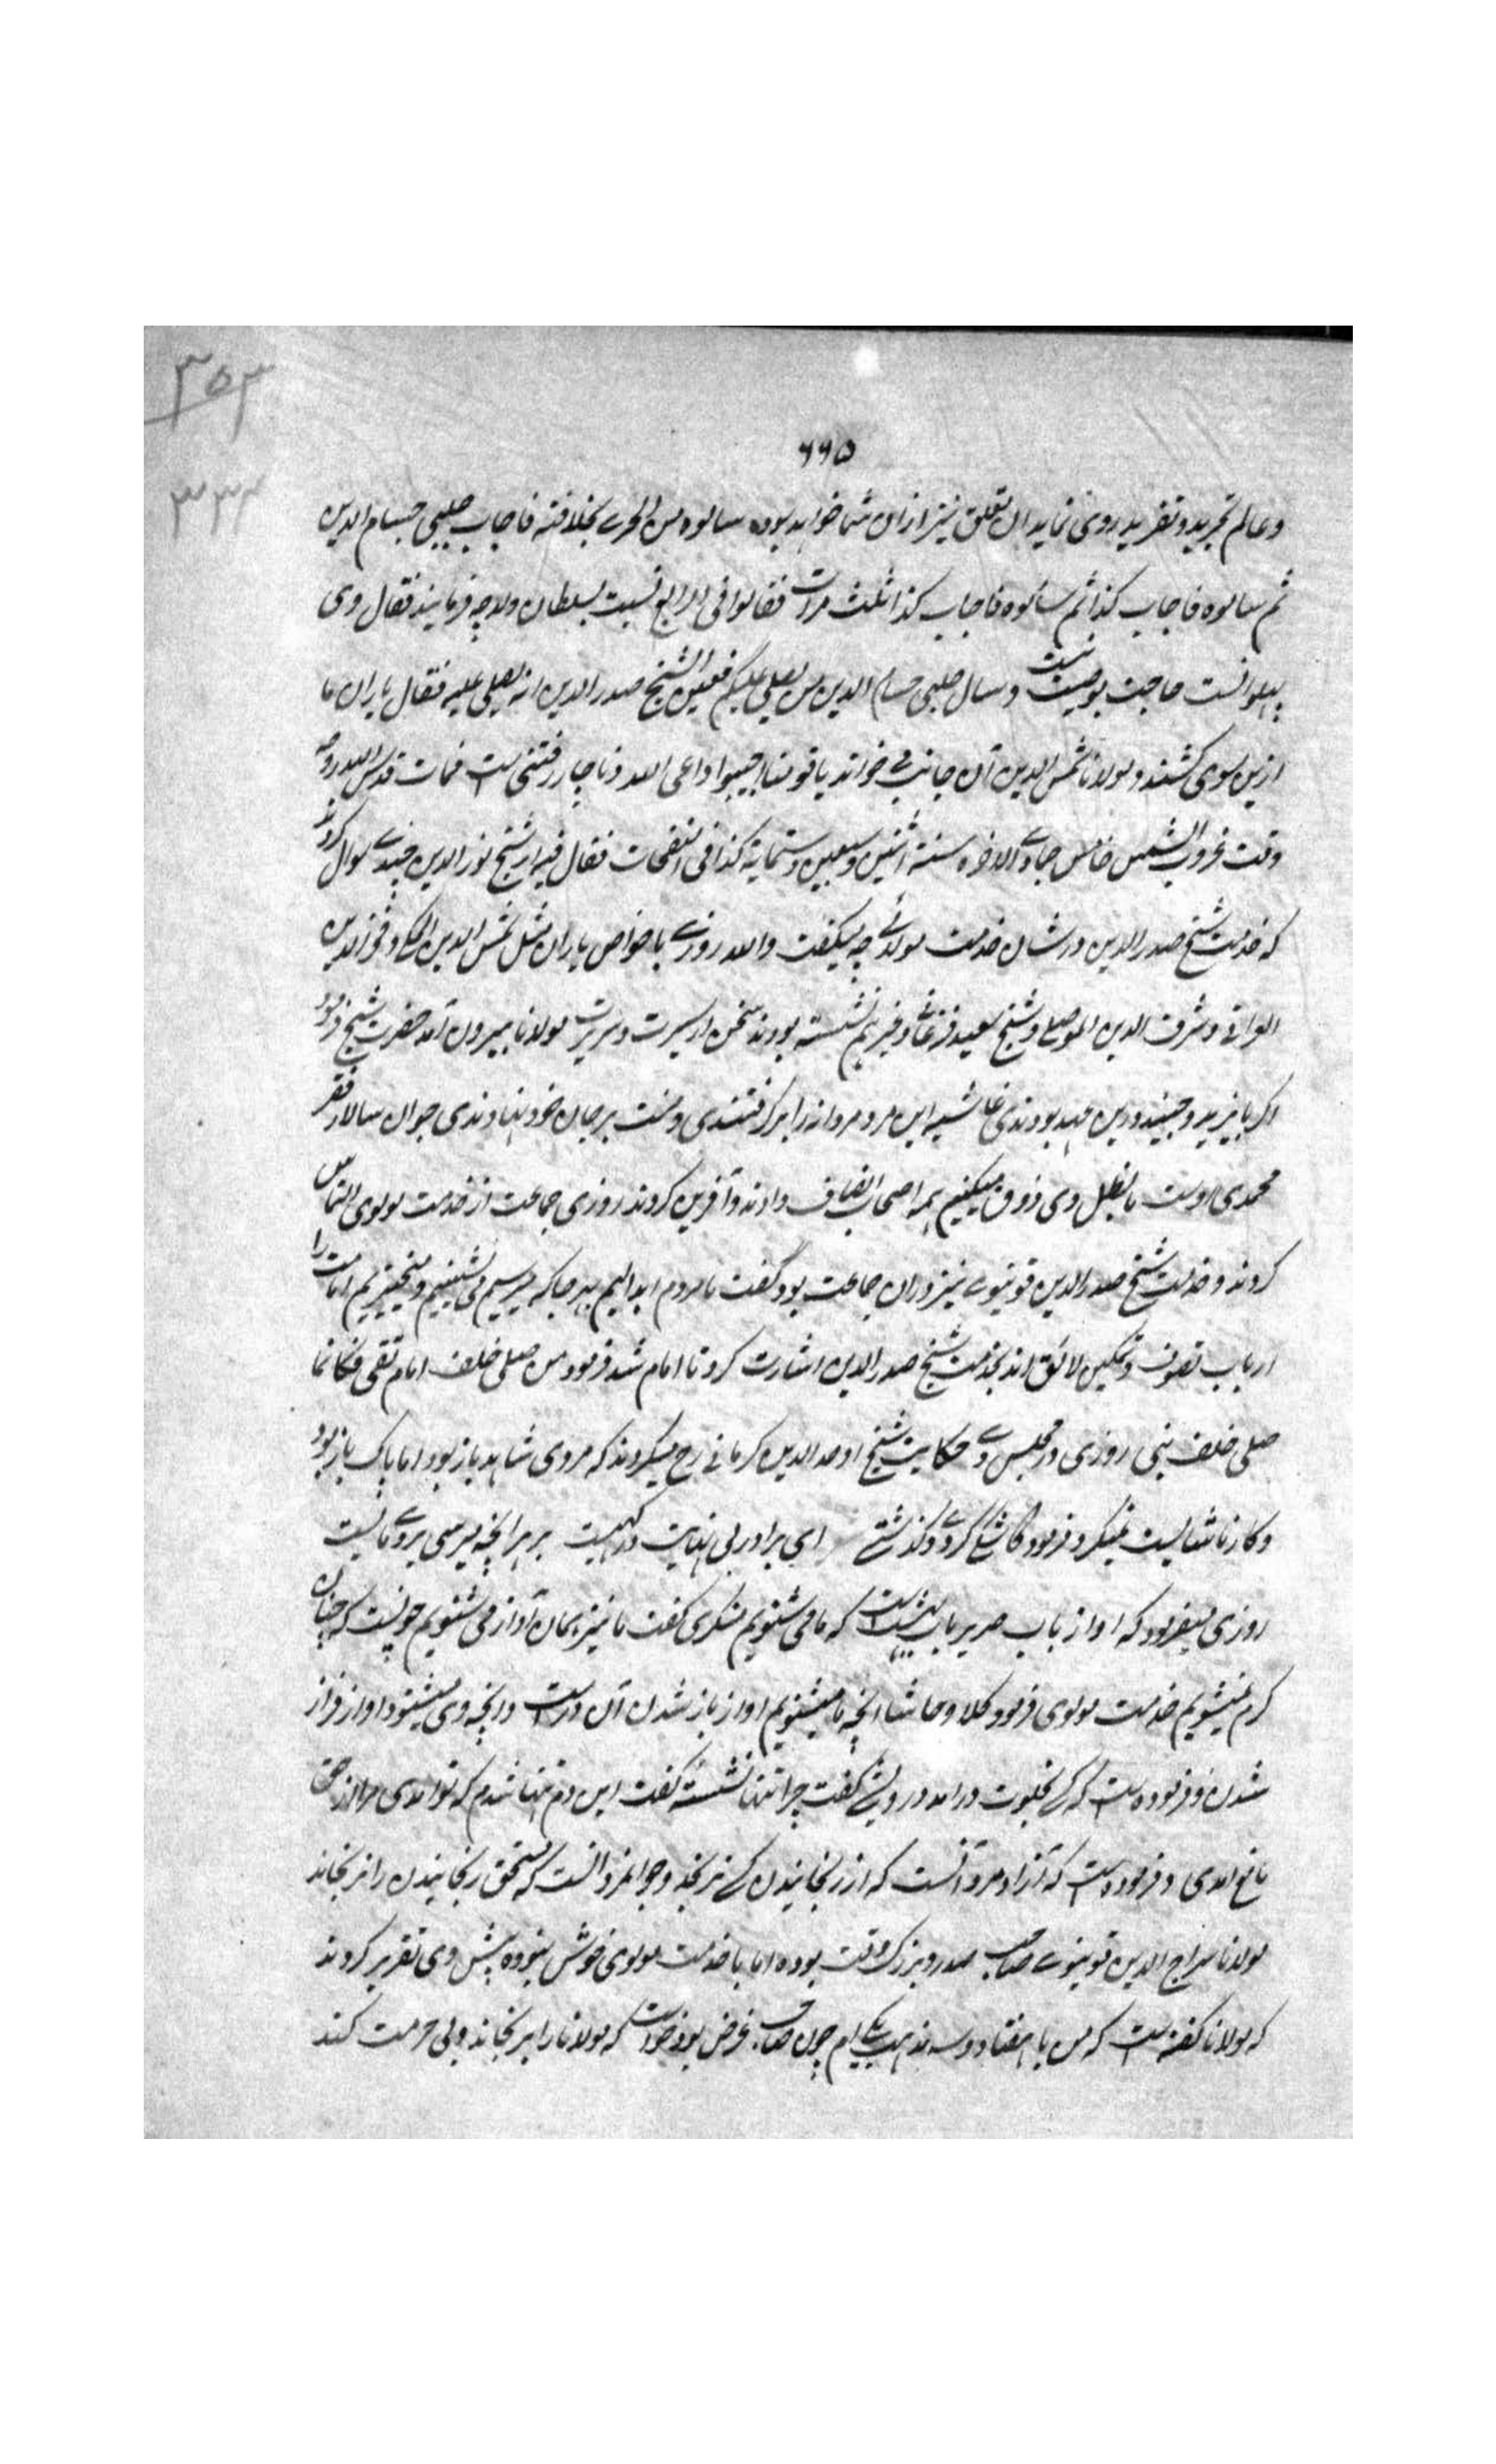 ۳۵۳
۳۳۴
۶۶۵
وعالم تجرید و تفرید روی نماید ان تعلق نیز ازان شما خواهد بوده سالوه من احری بخلافته فاجاب چلپی حسام الدین
ثم سالوه فاجاب کذا ثم سالوه فاجاب کذا ثلث مرات فقالوا فی الرابع نسبت بسلطان ولد چه فرمایند فقال وی
پهلوانست حاجت بوصیت نیست وسال چلپی حسام الدین من یصلی علیکم فعین الشیخ صدر الدین انه یصلی علیه فقال یاران ما
ازین سوی کشند و مولانا شمس الدین آن جانب می خواند یا قومنا اجیبوا داعی الله و ناچار رفتنی ست فمات قدس الله روحه
وقت غروب الشمس خامس جمادی الاخره سنة اثنین وسبعین وستمایة کذا فی النفحات فقال فیه از شیخ موید الدین جندی سوال کردند
که خدمت شیخ صدر الدین در شان خدمت مولوی چه میگفت والله روزی با خواص یاران مثل شمس الدین ایکی و فخر الدین
العراقی و شرف الدین الموصلی و شیخ سعید فرغانی و غیرهم نشسته بودند سخن از سیرت و سریرت مولانا بیرون آمد حضرت شیخ فرمود
اکر بایزید و جنید درین عهد بودندی غاشیه این مرد مردانه را برکرفتندی و منت بر جان خود نهادندی خوان سالار فقر
محمدی اوست ما بطفیل وی ذوق میکنیم همه اصحاب انصاف دادند و آفرین کردند روزی جماعت از خدمت مولوی التماس
کردند و خدمت شیخ صدر الدین قونیوی نیز دران جماعت بود گفت ما مردم ابدالیم بهر جا که میرسیم می نشینیم و میخیزیم امامت را
ارباب تصوف و تمکین لائق اند بخدمت شیخ صدر الدین اشارت کرد تا امام شد فرمود من صلی خلف امام تقی فکانما
صلی خلف نبی روزی در مجلس وی حکایت شیخ اوحد الدین کرمانی رح میکردند که مردی شاهد باز بود اما پاک باز بود
و کار ناشایست نمیکرد فرمود کاشکی کردی و گذشتی ای برادر بی نهایت درکهیست بر هر انچه میرسی بروی مایست
روزی میفرمود که اواز رباب صریر باب بهشت ست که ما می شنویم منکری گفت ما نیز همان آواز می شنویم چونست که چنان
گرم نمیشویم خدمت مولوی فرمود کلا وحاشا انچه ما میشنویم اواز باز شدن آن درست وانچه وی میشنود اواز فراز
شدن و فرموده ست که کسی بخلوت درامد درویشی گفت چرا تنها نشسته گفت این دم تنها شدم که تو امدی مرا از حق
مانع امدی و فرموده ست که آزاد مرد آنست که از رنجانیدن کسی نرنجد و جوانمرد انست که مستحق رنجانیدن را نرنجاند
مولانا سراج الدین قونیوی صاحب صدر و بزرگ وقت بوده اما با خدمت مولوی خوش نبوده پیش وی تقریر کردند
که مولانا گفته ست که من با هفتاد و سه مذهب یکی ام چون صاحب غرض بود خواست که مولانا را برنجاند و بی حرمت کند